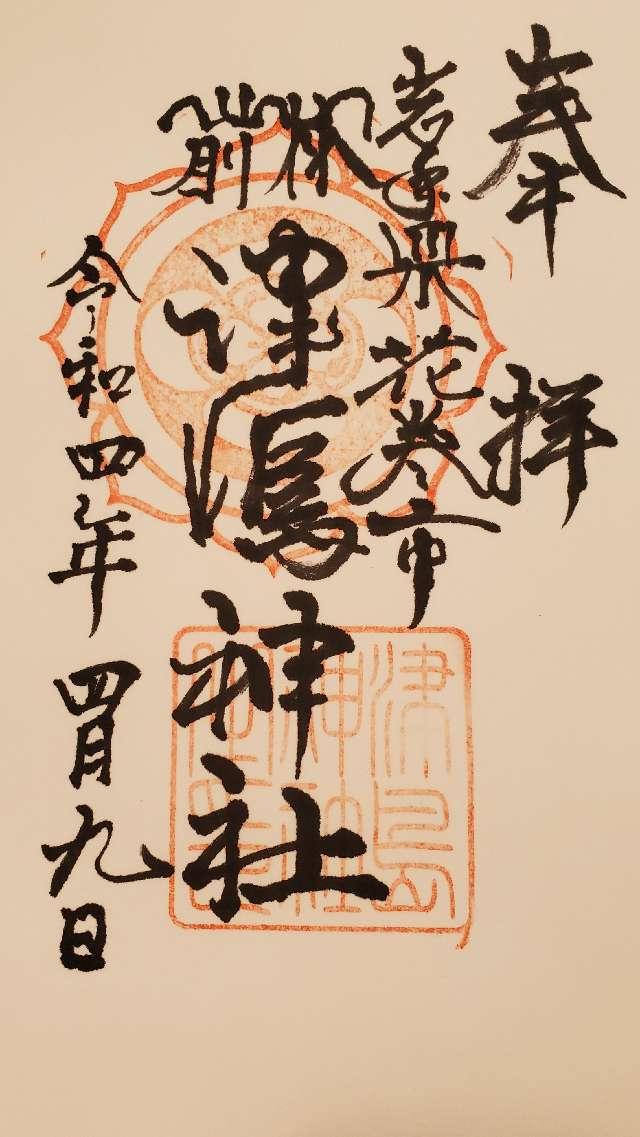 奉拝
岩手県花巻市
津嶋神社
令和四年四月九日
津島
神社